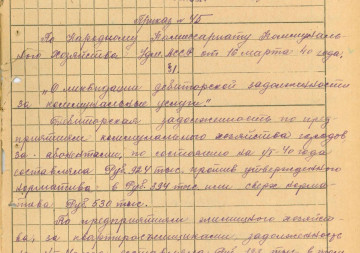 Приказ № 45
По Народному Комиссариату Коммуналь-
ного Хозяйства АССР от 16 марта 40 года,
31.
"О ликвидации дебиторской задолженности
за коммунальные услуги."
Дебиторская задолженность по пред-
приятиям коммунального хозяйства городов
за абонентами, по состоянию на 1/I-40 года
составляла руб. 924 тыс. против утвержденного
норматива в руб. 394 тыс или сверх норма-
тива руб 530 тыс.
По предприятиям жилищного хозяйст-
ва, за квартиросъемщиками задолженность